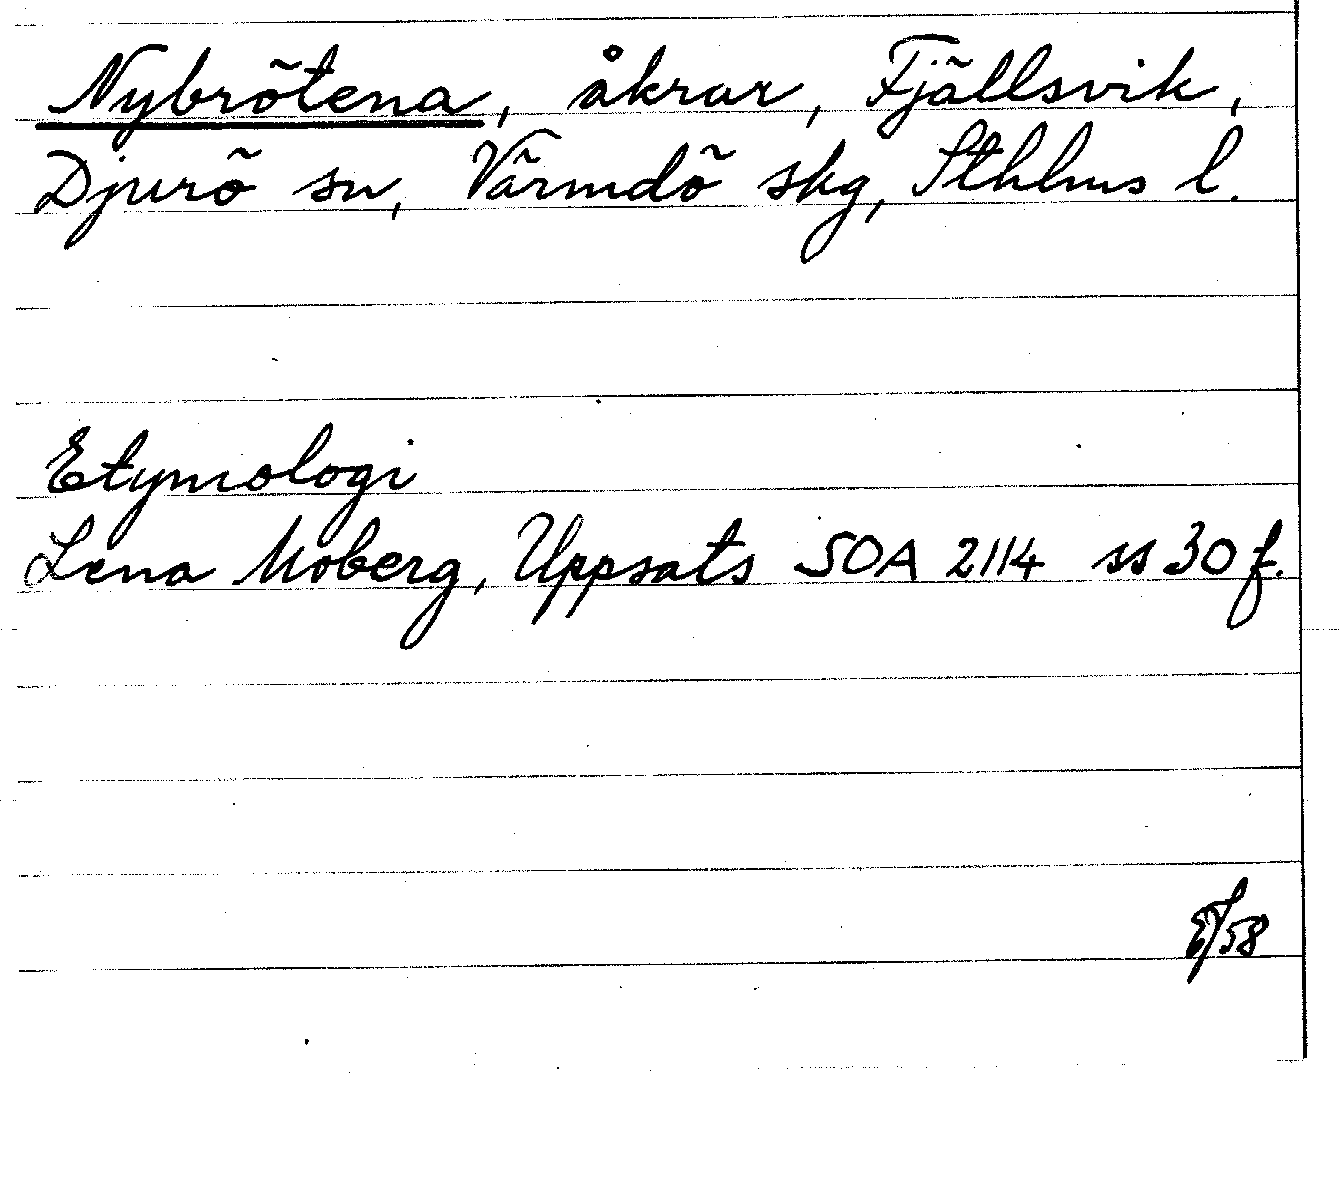 Nybrötena, åkrar, Fjällsvik,
Djurö sn, Värmdö skg, Sthlms l.
Etymologi
Lena Moberg, Uppsats SOA 2114 ss 30 f.